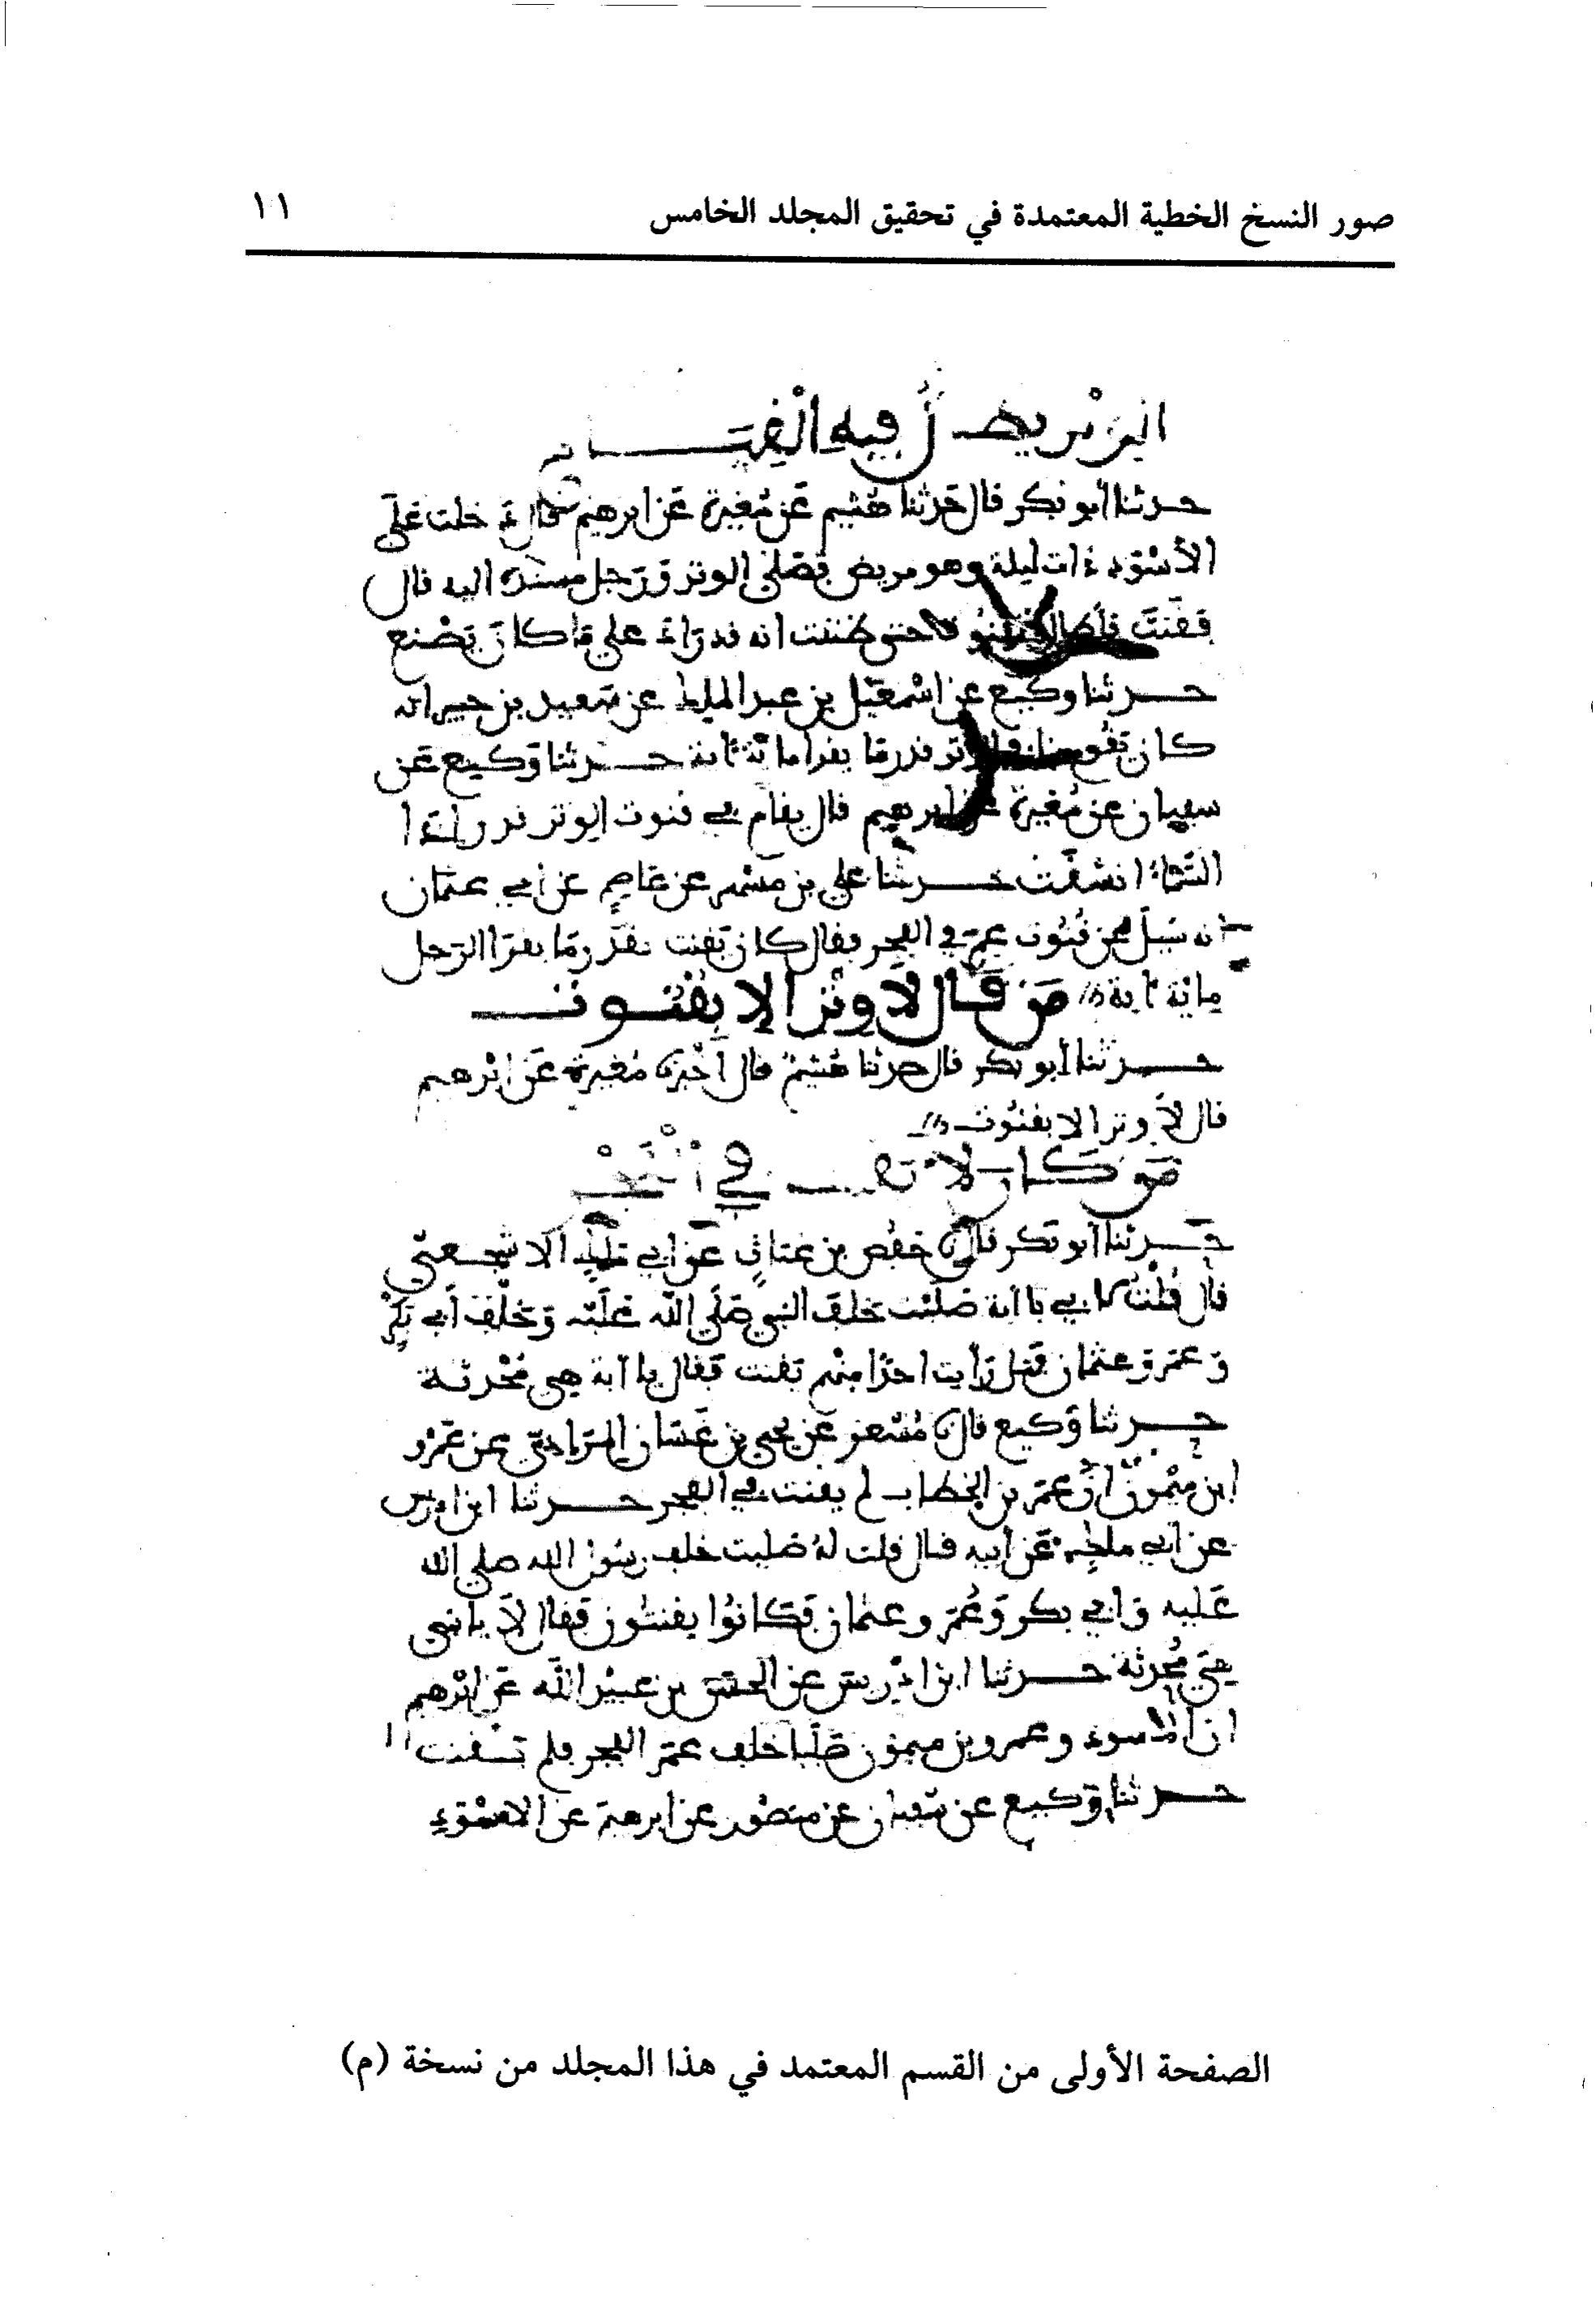 صور النسخ الخطية المعتمدة في تحقيق المجلد الخامس
١١
يطيل فيه القيام
حدثنا أبو بكر قال حدثنا هشيم عن مغيرة عن ابرهيم قال دخلت على
الأسود ذات ليلة وهو مريض فصلى الوتر ورجل مسنده اليه قال
فقنت فأطال القنوت حتى ظننت انه قد زاد على ما كان يصنع
حدثنا وكيع عن اسمعيل بن عبد الملك عن سعيد بن جبير انه
كان يقوم في الوتر قدر ما يقرا مائة آية حدثنا وكيع عن
سفيان عن مغيرة عن ابرهيم قال يقام في قنوت الوتر قدر إذا
السماء انشقت حدثنا علي بن مسهر عن عاصم عن أبي عثمان
انه سئل عن قنوت عمر في الفجر فقال كان يقنت بقدر ما يقرا الرجل
مائة آية من قال لا وتر إلا بقنوت
حدثنا أبو بكر قال حدثنا هشيم قال أخبرنا مغيرة عن إبرهيم
قال لا وتر الا بقنوت
من كان لا يقنت في الفجر
حدثنا أبو بكر قال نا حفص بن غياث عن أبي الاشجعي
قال قلت لابي يا ابة صليت خلف النبي صلى الله عليه وخلف أبي بكر
وعمر وعثمان فهل رأيت احدا منهم يقنت فقال يا ابة هي محدثة
حدثنا وكيع قال نا مسعر عن يحيى بن غسان المرادي عن عمرو
ابن ميمون أن عمر بن الخطاب لم يقنت في الفجر حدثنا ابن ادريس
عن أبي ملك عن أبيه قال قلت له صليت خلف رسول الله صلى الله
عليه وابي بكر وعمر وعثمان فكانوا يقنتون فقال لا يا بني
هي محدثة حدثنا ابن ادريس عن الحسن بن عبيد الله عن إبرهيم
ان الاسود وعمرو بن ميمون صليا خلف عمر الفجر فلم يقنت
حدثنا وكيع عن سفيان عن منصور عن ابرهيم عن الاسود
الصفحة الأولى من القسم المعتمد في هذا المجلد من نسخة (م)